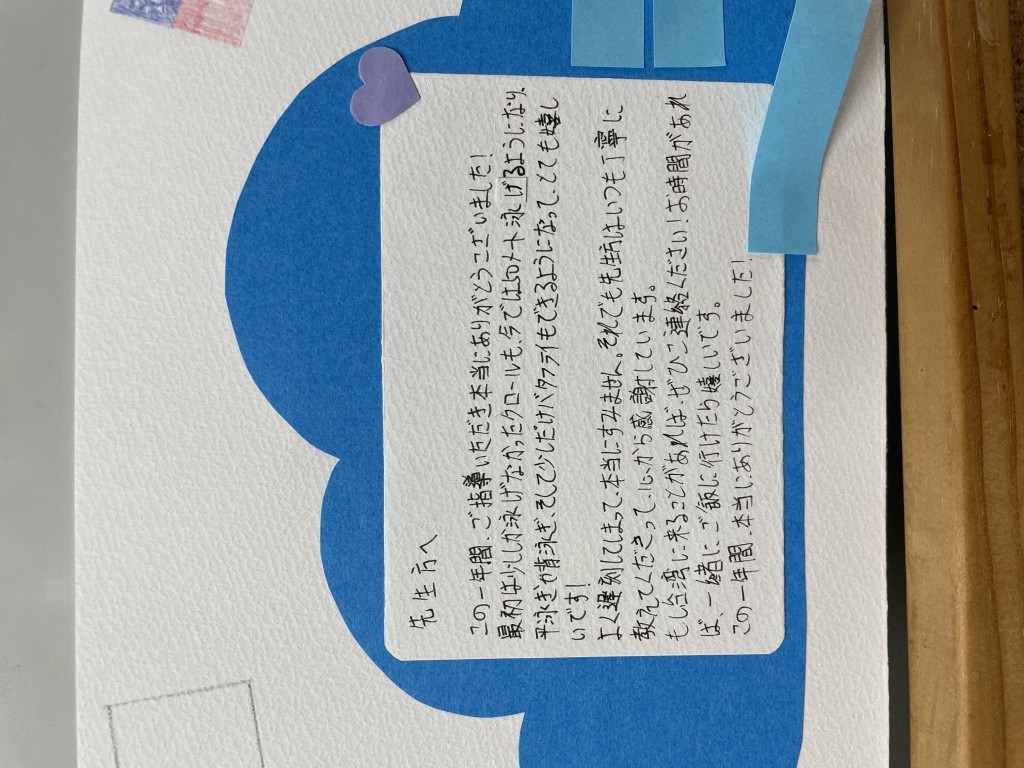 先生方へ
この一年間、ご指導いただき本当にありがとうございました!
最初は少ししか泳げなかったクロールも、今では50メート泳げるようになり、
平泳ぎや背泳ぎ、そして少しだけバタフライもできるようになって、とても嬉し
いです!
よく遅刻してしまって、本当にすみません。それでも先生方はいつも丁寧に
教えてくださって、心から感謝しています。
もし台湾に来ることがあれば、ぜひご連絡ください!お時間があれ
ば、一緒にご飯に行けたら嬉しいです。
この一年間、本当にありがとうございました!